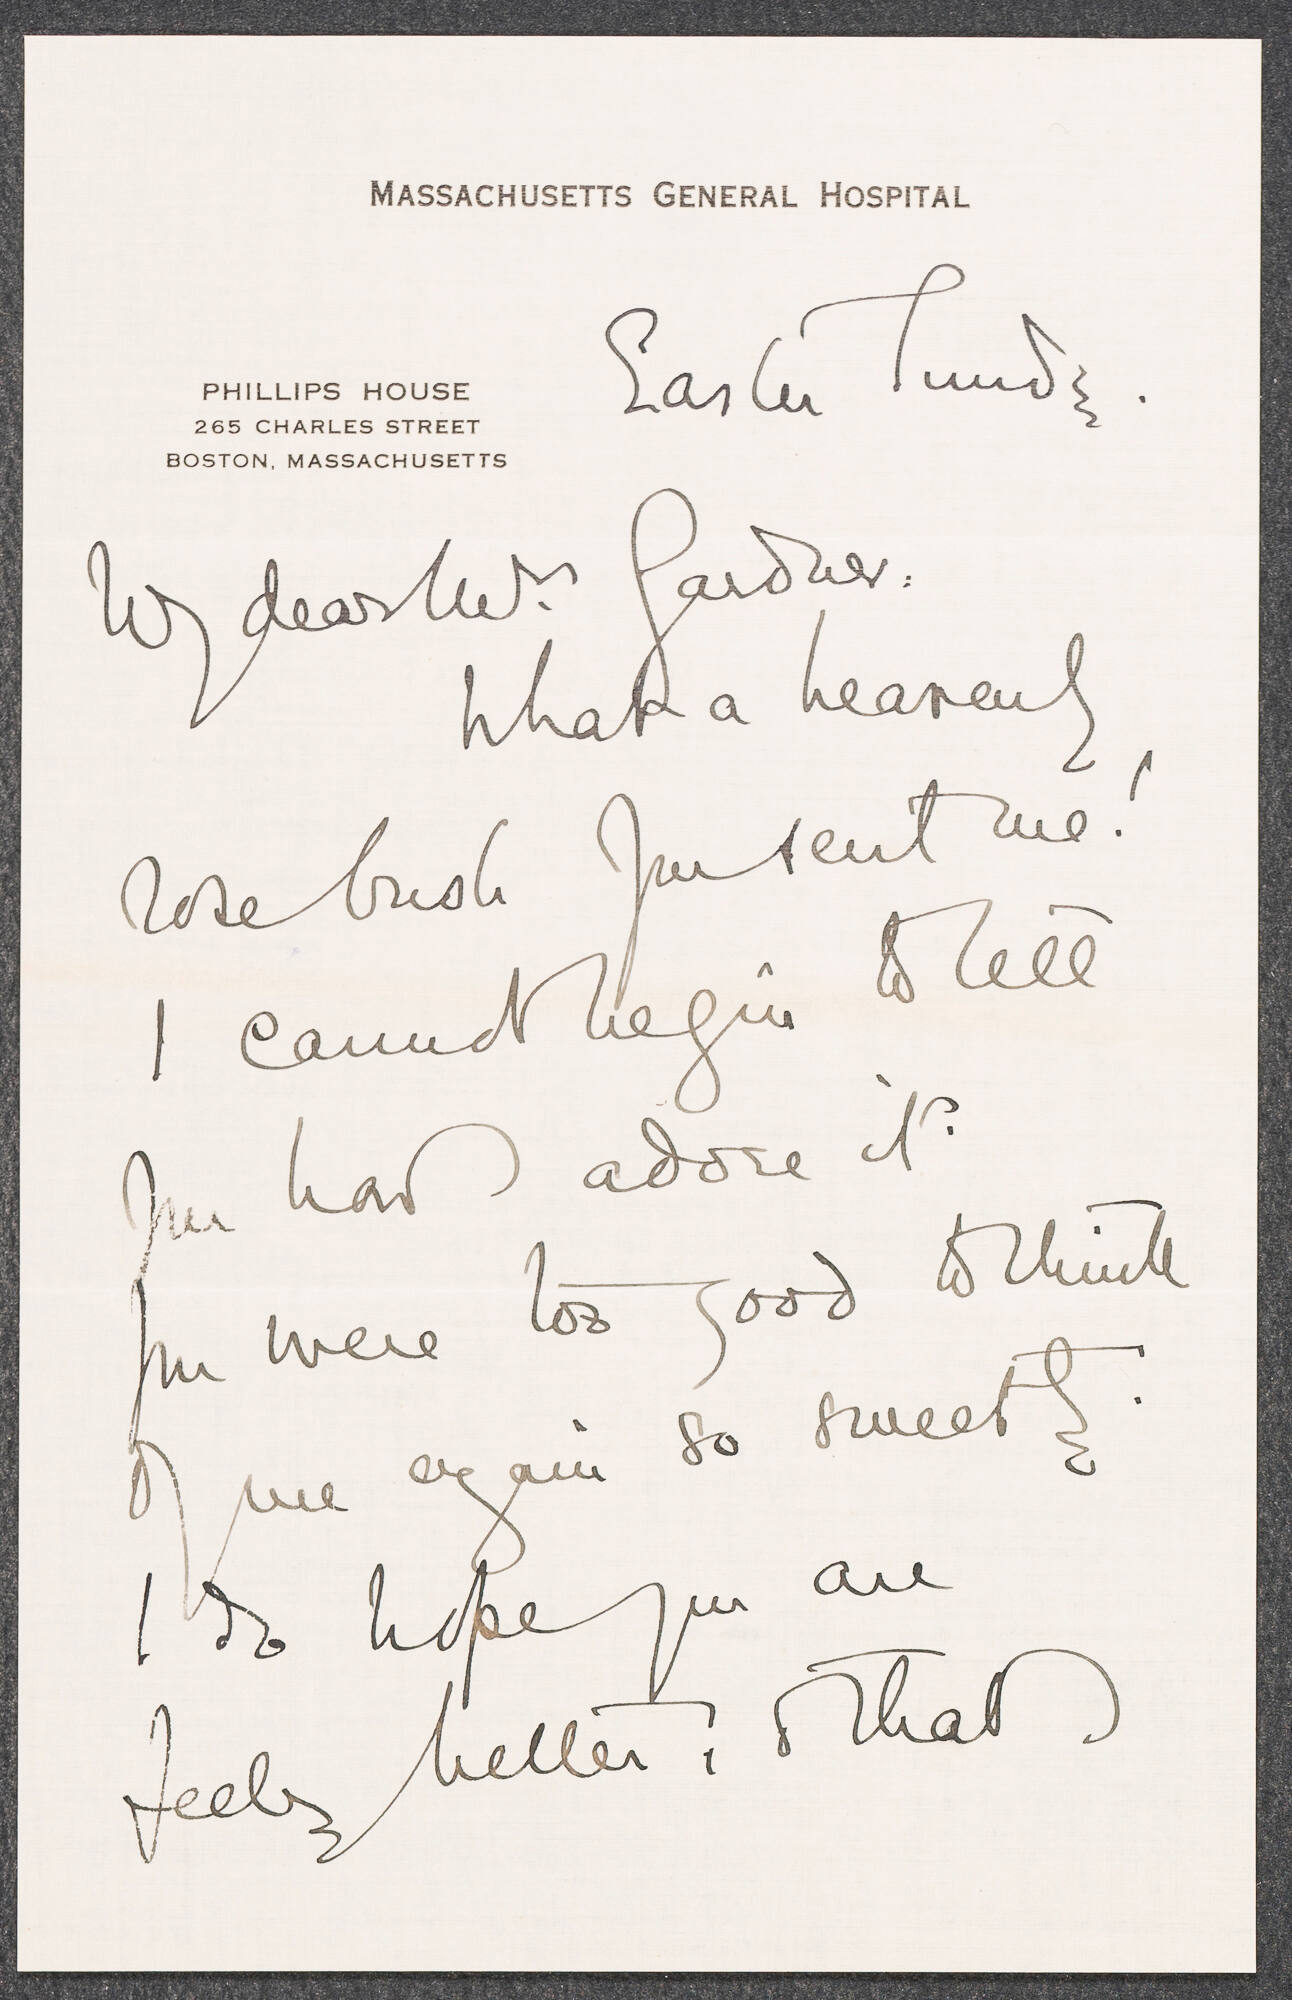 MASSACHUSETTS GENERAL HOSPITAL
Easter
PHILLIPS HOUSE
265 CHARLES STREET
BOSTON, MASSACHUSETTS
My dear Mrs. Gardner:
What a heavenly
rose bush you sent me!
I cannot begin to tell
you how I adore it.
You were too good to think
of me again so sweetly.
I do hope you are
feeling better; & that